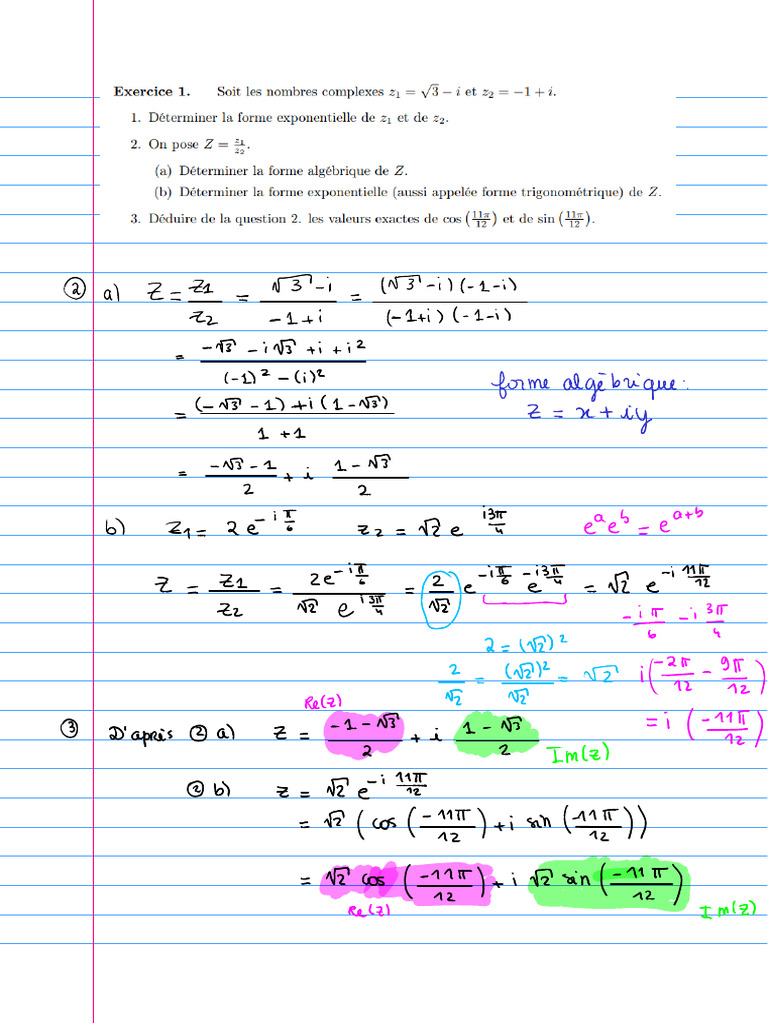 Exercice 1. Soit les nombres complexes z₁ = √3 − i et z₂ = −1 + i.
1. Déterminer la forme exponentielle de z₁ et de z₂.
2. On pose Z = z₁/z₂.
(a) Déterminer la forme algébrique de Z.
(b) Déterminer la forme exponentielle (aussi appelée forme trigonométrique) de Z.
3. Déduire de la question 2. les valeurs exactes de cos (11π/12) et de sin (11π/12).
② a) Z = z₁/z₂ = (√3 − i)/(−1 + i) = (√3 − i)(−1 − i)/((−1+i)(−1−i))
= (−√3 − i√3 + i + i²)/((−1)² − (i)²)
forme algébrique :
= ((−√3 − 1) + i(1 − √3))/(1 + 1)
Z = x + iy
= (−√3 − 1)/2 + i (1 − √3)/2
b) z₁ = 2e^(−iπ/6) z₂ = √2 e^(i3π/4) e^a e^b = e^(a+b)
Z = z₁/z₂ = 2e^(−iπ/6)/(√2 e^(i3π/4)) = 2/√2 e^(−iπ/6) e^(−i3π/4) = √2 e^(−i11π/12)
−iπ/6 − i3π/4
2 = (√2)²
2/√2 = (√2)²/√2 = √2 i(−2π/12 − 9π/12)
= i(−11π/12)
Re(z)
③ D'après ② a) Z = (−1 − √3)/2 + i (1 − √3)/2
Im(z)
② b) Z = √2 e^(−i11π/12)
= √2 (cos(−11π/12) + i sin(−11π/12))
= √2 cos(−11π/12) + i √2 sin(−11π/12)
Re(z) Im(z)